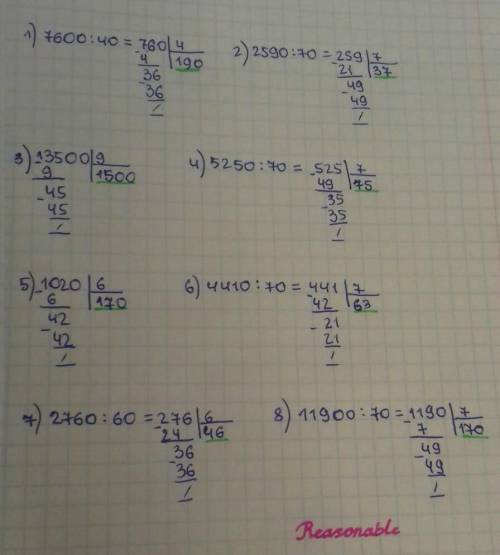 1) 7600 : 40 = 760 | 4
- 4 | 190
36
- 36
/
2) 2590 : 70 = 259 | 7
- 21 | 37
49
- 49
/
3) 13500 | 9
- 9 | 1500
45
- 45
/
4) 5250 : 70 = 525 | 7
- 49 | 75
35
- 35
/
5) 1020 | 6
- 6 | 170
42
- 42
/
6) 4410 : 70 = 441 | 7
- 42 | 63
21
- 21
/
7) 2760 : 60 = 276 | 6
- 24 | 46
36
- 36
/
8) 11900 : 70 = 1190 | 7
- 7 | 170
49
- 49
/
Reasonable